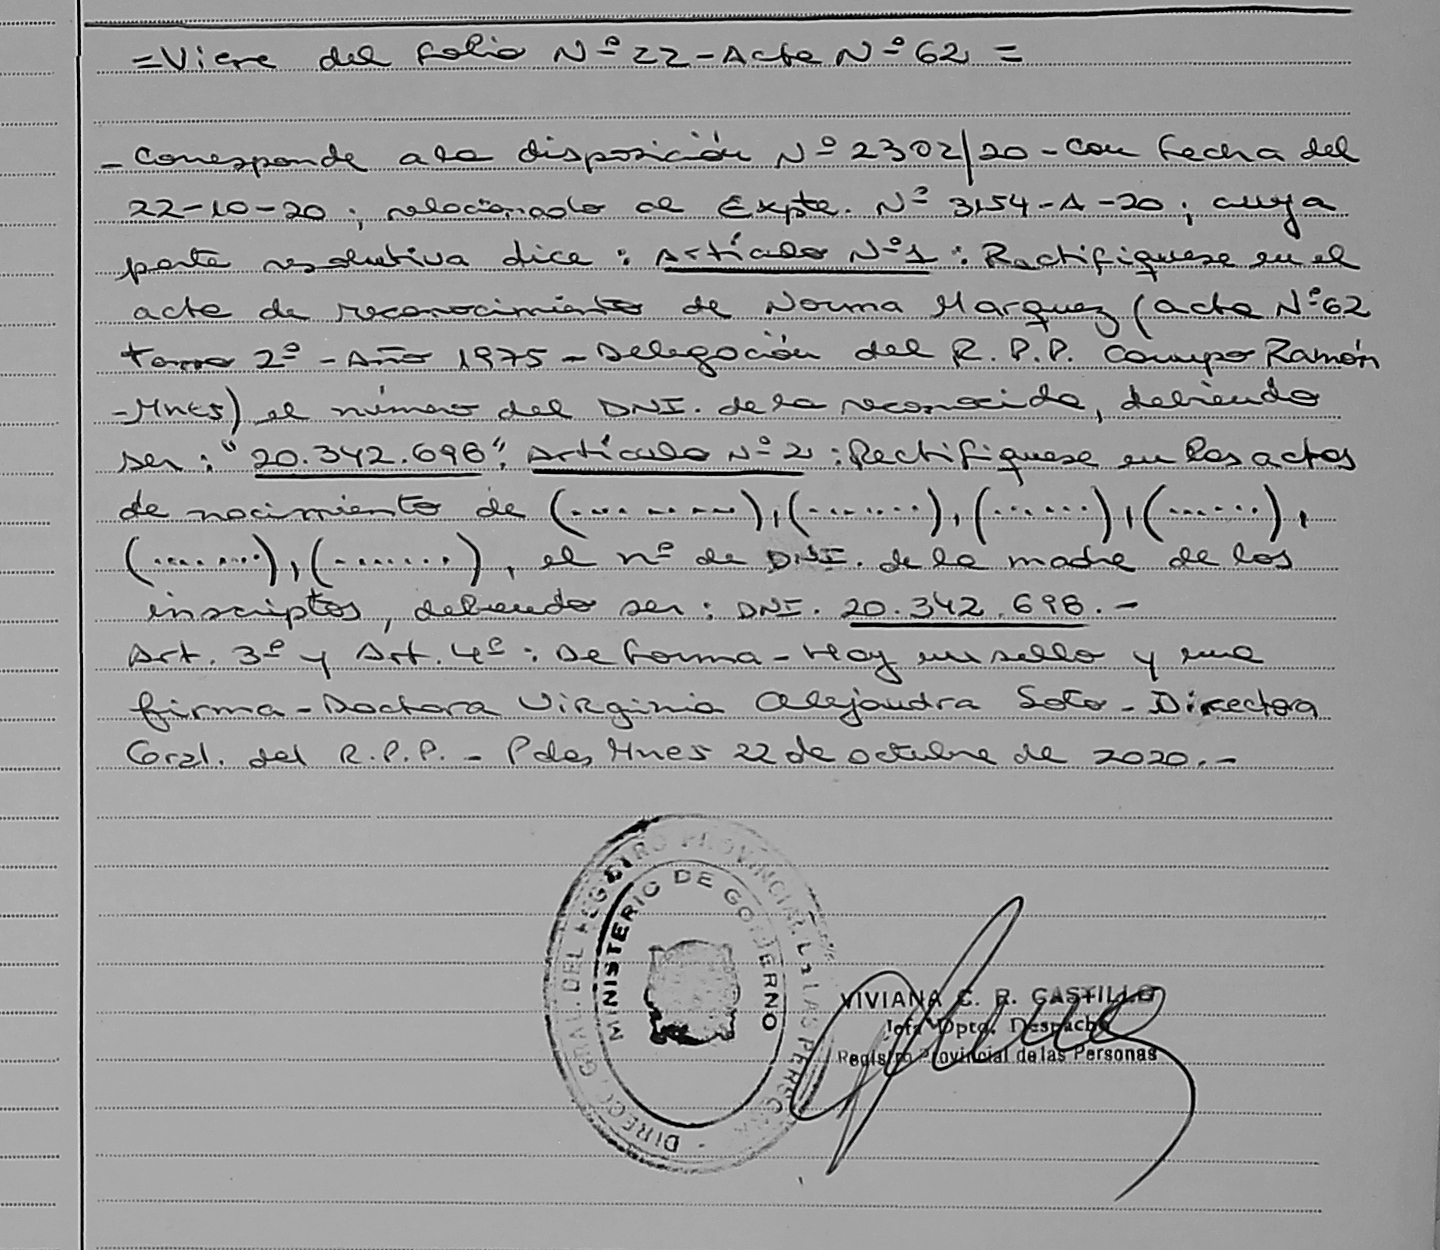 =Viene del folio Nº 22-Acta Nº 62 =
- Corresponde a la disposición Nº 2302/20 - con fecha del
22-10-20; relacionado al Expte. Nº 3154-A-20; cuya
parte resolutiva dice: Artículo Nº1: Rectifíquese en el
acta de reconocimiento de Norma Marquez (acta Nº 62
tomo 2º - Año 1975 - Delegación del R.P.P. Campo Ramón
-Mnes) el número del DNI. de la reconocida, debiendo
ser: "20.342.698". Artículo Nº 2: Rectifiquese en las actas
de nacimiento de (..........), (.........), (.......), (.......),
(.........), (.........), el nº de DNI. de la madre de los
inscriptos, debiendo ser: DNI. 20.342.698.-
Art. 3º y Art. 4º: De forma - Hay un sello y una
firma - Doctora Virginia Alejandra Soto - Directora
Gral. del R.P.P. - Pdas, Mnes 22 de octubre de 2020.-
DIRECC. GRAL. DEL REGISTRO PROVINCIAL DE LAS PERSONAS
MINISTERIO DE GOBIERNO
VIVIANA C. R. CASTILLO
Jefa Dpto. Despacho
Registro Provincial de las Personas